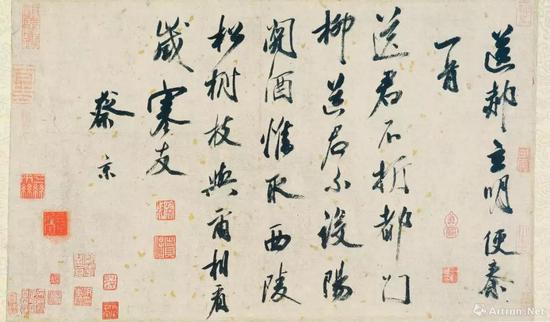 送郝玄明使秦
一首
送君不折都門
柳送君不設陽
關酒惟取西陵
松樹枝與爾相看
歲寒友
蔡京
Artron.Net